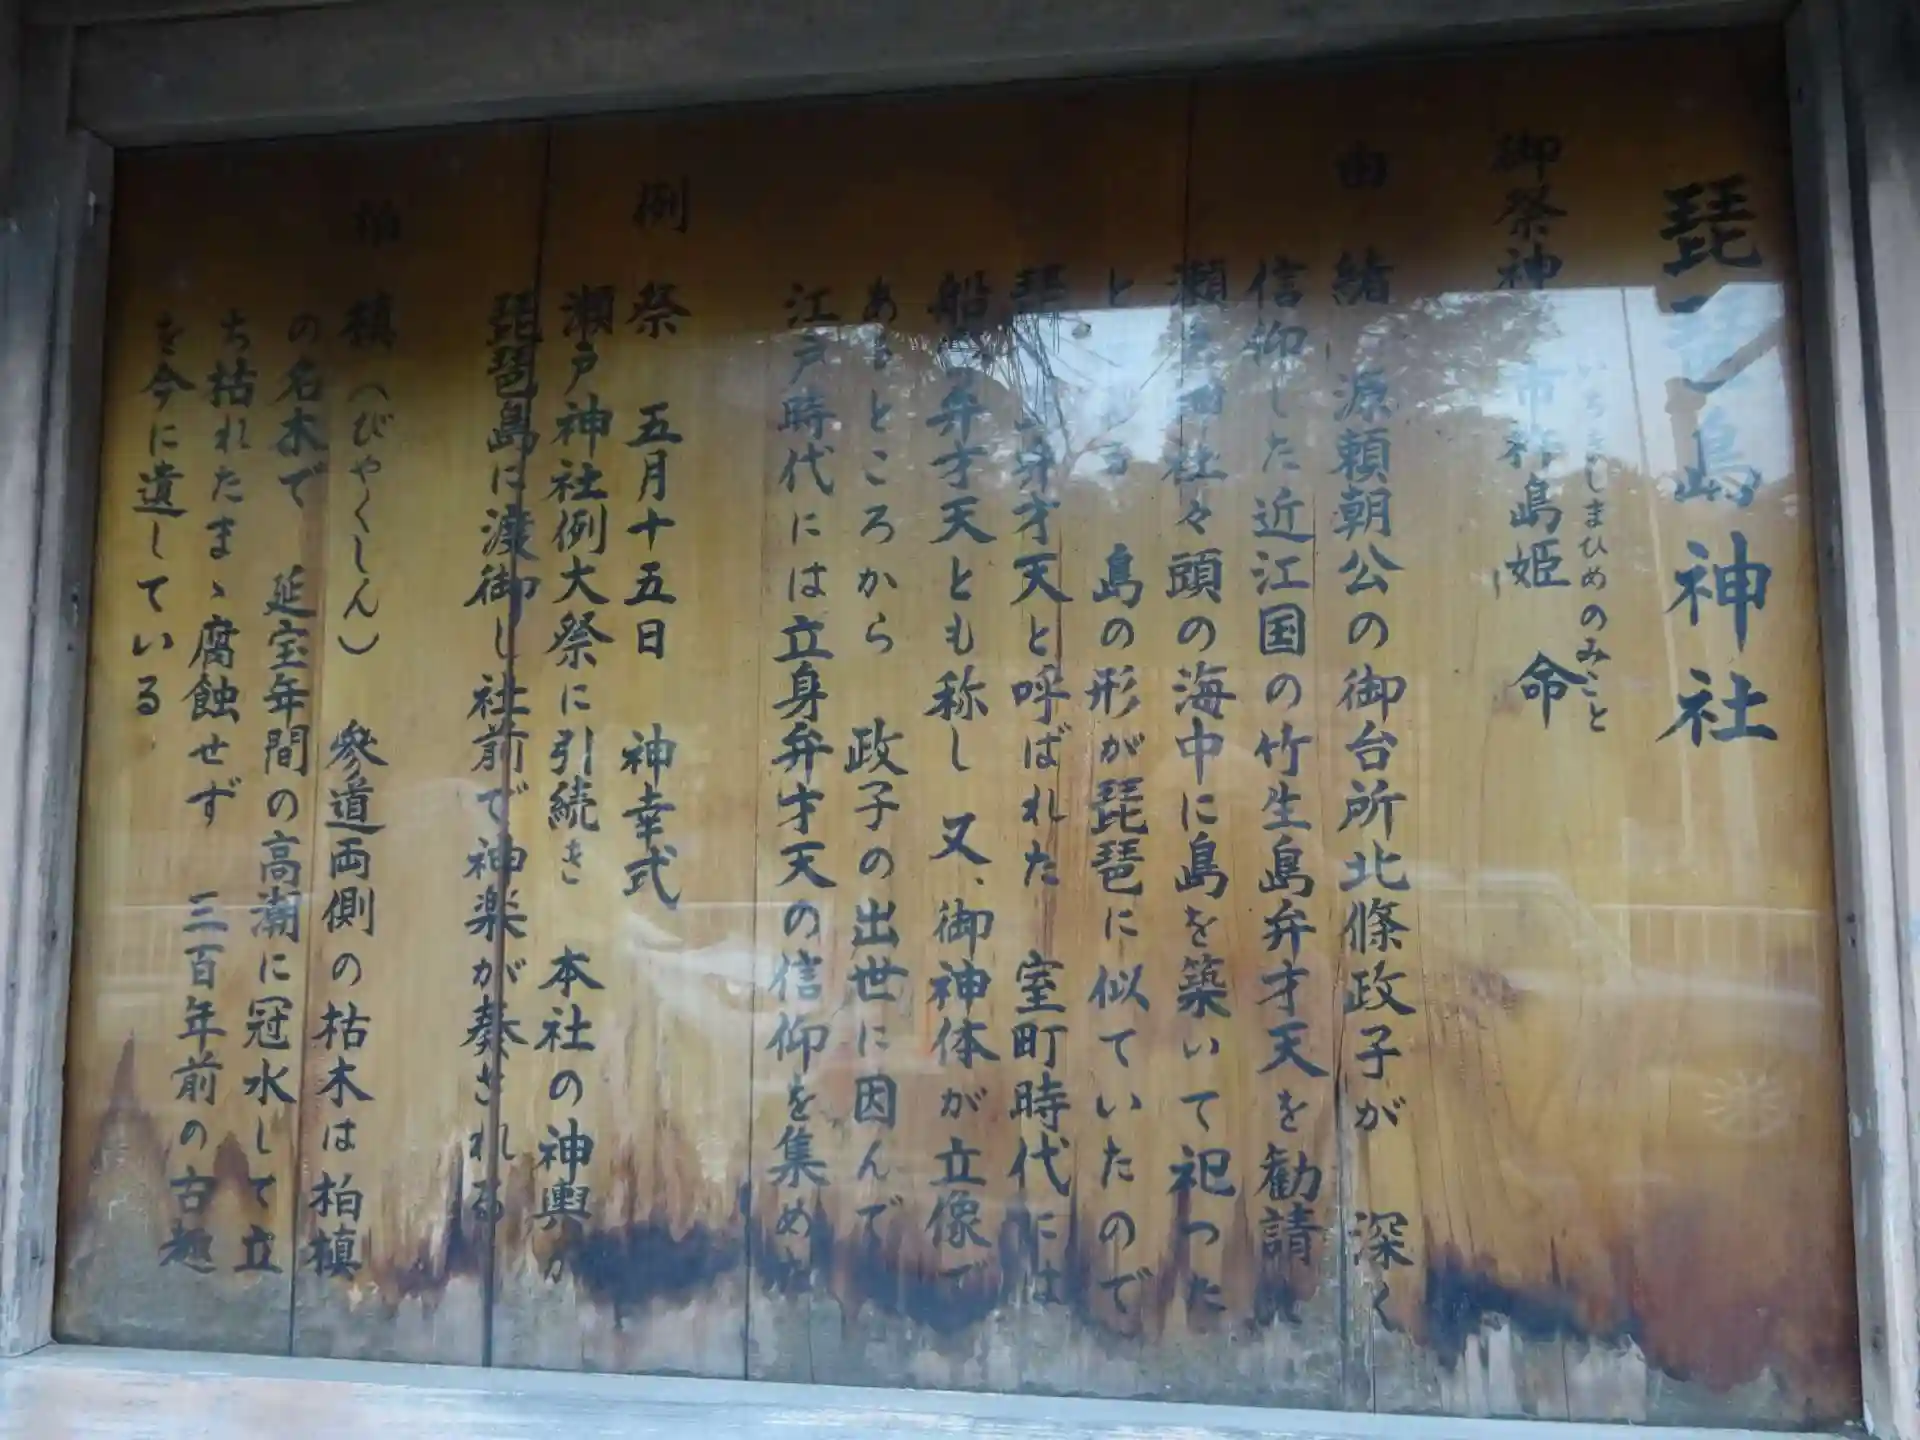 琵琶島神社
御祭神 市杵島姫 命
いちきしまひめのみこと
由 緒 源頼朝公の御台所北條政子が 深く
信仰した近江国の竹生島弁才天を勧請し
瀬戸神社々頭の海中に島を築いて祀った
と 島の形が琵琶に似ていたので
琵 弁才天と呼ばれた 室町時代には
船 弁才天とも称し 又、御神体が立像で
あるところから 政子の出世に因んで
江戸時代には立身弁才天の信仰を集めた
例 祭 五月十五日 神幸式
瀬戸神社例大祭に引続き 本社の神輿が
琵琶島に渡御し社前で神楽が奏される
柏 槙(びやくしん) 參道両側の枯木は柏槙
の名木で 延宝年間の高潮に冠水して立
ち枯れたまゝ腐蝕せず 三百年前の古趣
を今に遺している